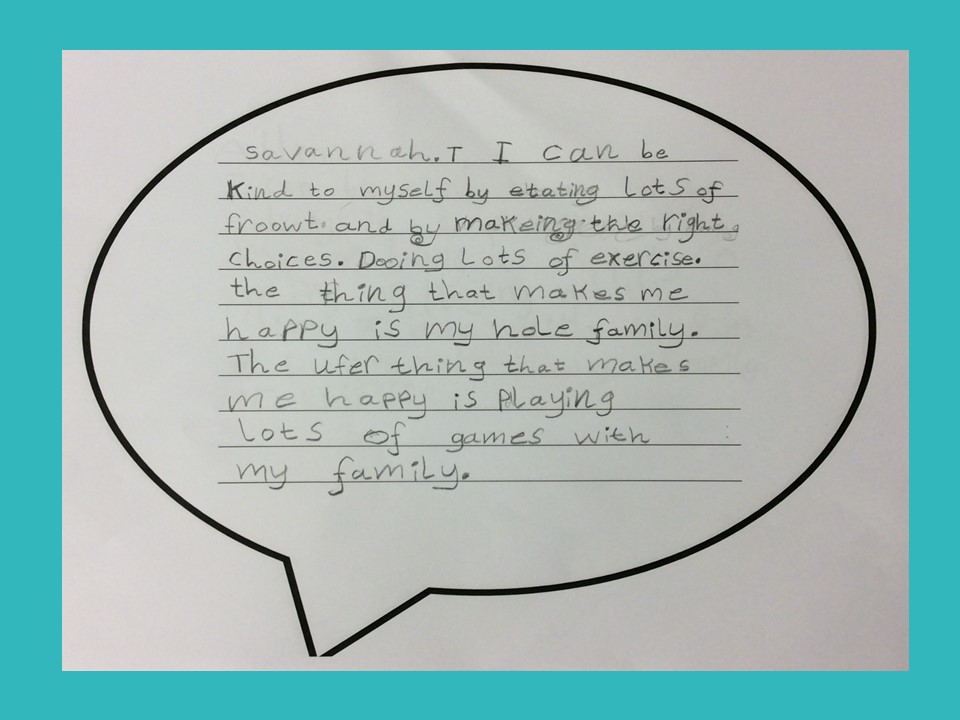 Savannah.T I can be
Kind to myself by etating Lots of
froowt. and by makeing the right
Choices. Dooing Lots of exercise.
the thing that makes me
happy is my hole family.
The ufer thing that makes
me happy is playing
Lots of games with
my family.